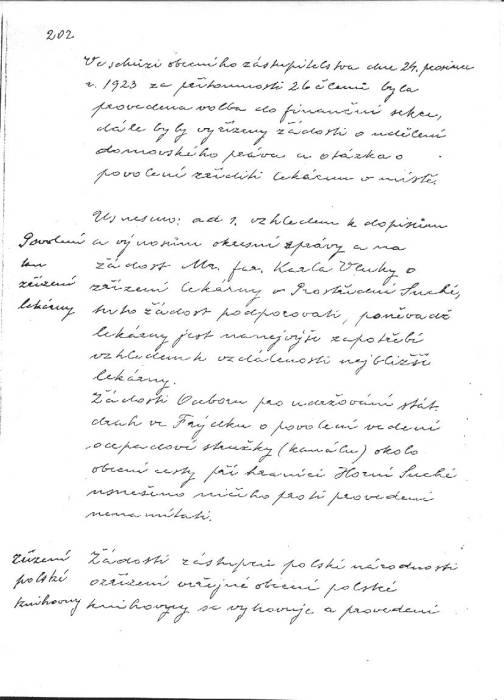 202
Ve schůzi obecního zastupitelstva dne 24. prosince
r. 1923 za přítomnosti 26 členů byla
provedena volba do finanční sekce,
dále byly vyřízeny žádosti o udělení
domovského práva a otázka o
povolení zříditi lekárnu v místě.
Usneseno: ad 1. vzhledem k dopisům
Povolení
ku
zřízení
lekárny
a výnosům okresní správy a na
žádost Mr. far. Karla Vluky o
zřízení lekárny v Prostřední Suché,
tuto žádost podporovati, poněvadž
lekárny jest nanejvýše zapotřebí
vzhledem k vzdálenosti nejbližší
lekárny.
Žádosti Odboru pro udržování stát.
drah ve Frýdku o povolení vedení
odpadové stružky (kanálu) okolo
obecní cesty při hranici Horní Suché
usnešeno ničeho proti provedení
nenamítati.
zřízení
polské
knihovny
Žádosti zástupců polské národnosti
o zřízení veřejné obecní polské
knihovny se vyhovuje a provedení